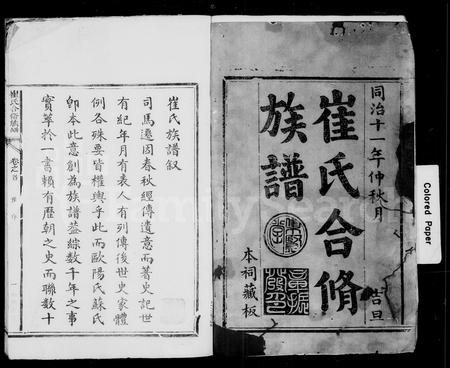 同治十一年仲秋月 吉旦
崔氏合脩
族譜
本祠藏板
崔氏族譜叙
司馬遷因春秋經傳遺意而著史記世
有紀年月有表人有列傳後世史家體
例各殊要皆權輿乎此而歐陽氏蘇氏
卽本此意創為族譜葢綜數千年之事
實萃於一書賴有歷朝之史而聯數十
崔氏合脩族譜
卷之首
一
Colored Paper